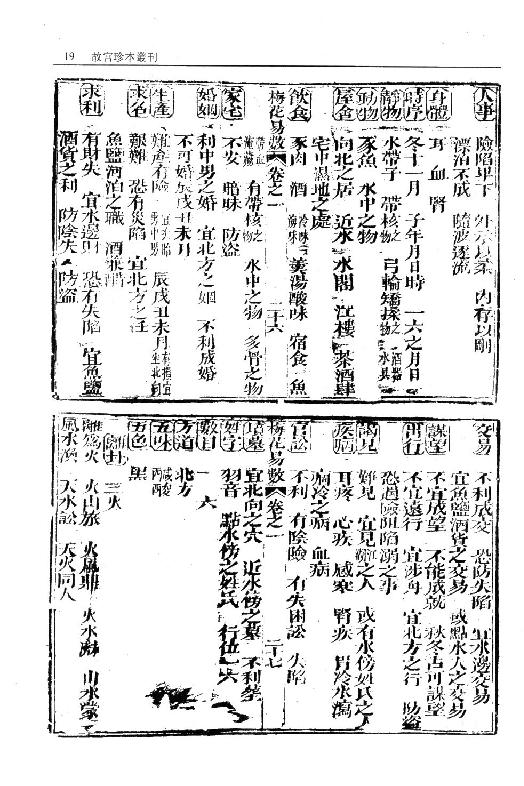 19 故宮珍本叢刊
人事 險陷卑下 外示以柔 內存以剛
漂泊不成 隨波逐流
身體 耳 血 腎
時序 冬十一月 子年月日時 一六之月日
靜物 水帶子 帶核之物 弓輪矯揉之物 酒器 水具
動物 豕魚 水中之物
屋舍 向北之居 近水 水閣 江樓 茶酒肆
宅中濕地之處
飲食 豕肉 酒 冷味 海味 羹湯 酸味 宿食 魚
梅花易數 卷之一 二十六
帶血 有帶核之物 水中之物 多骨之物
家宅 不安 暗昧 防盜
婚姻 利中男之婚 宜北方之姻 不利成婚
不可婚辰戌丑未月
生產 難產有險 宜次胎 中男 辰戌丑未月有損 宜坐北向
求名 艱難 恐有災陷 宜北方之任
魚鹽河泊之職 酒兼醋
求利 有財失 宜水邊財 恐有失陷 宜魚鹽
酒貨之利 防陰失 防盜
交易 不利成交 恐防失陷 宜水邊交易
宜魚鹽酒貨之交易 或點水人之交易
謀望 不宜成望 不能成就 秋冬占可謀望
出行 不宜遠行 宜涉舟 宜北方之行 防盜
恐遇險阻陷溺之事
謁見 難見 宜見江湖之人 或有水傍姓氏之人
疾病 耳疼 心疾 感寒 腎疾 胃冷水瀉
痼冷之病 血病
官訟 不利 有陰險 有失困訟 失陷
梅花易數 卷之一 二十七
墳墓 宜北向之穴 近水傍之墓 不利葬
姓字 羽音 點水傍之姓氏 行位一六
數目 一 六
方道 北方
五味 鹹 酸
五色 黑
離卦 三 火
離為火 火山旅 火風鼎 火水未濟 山水蒙
風水渙 天水訟 天火同人